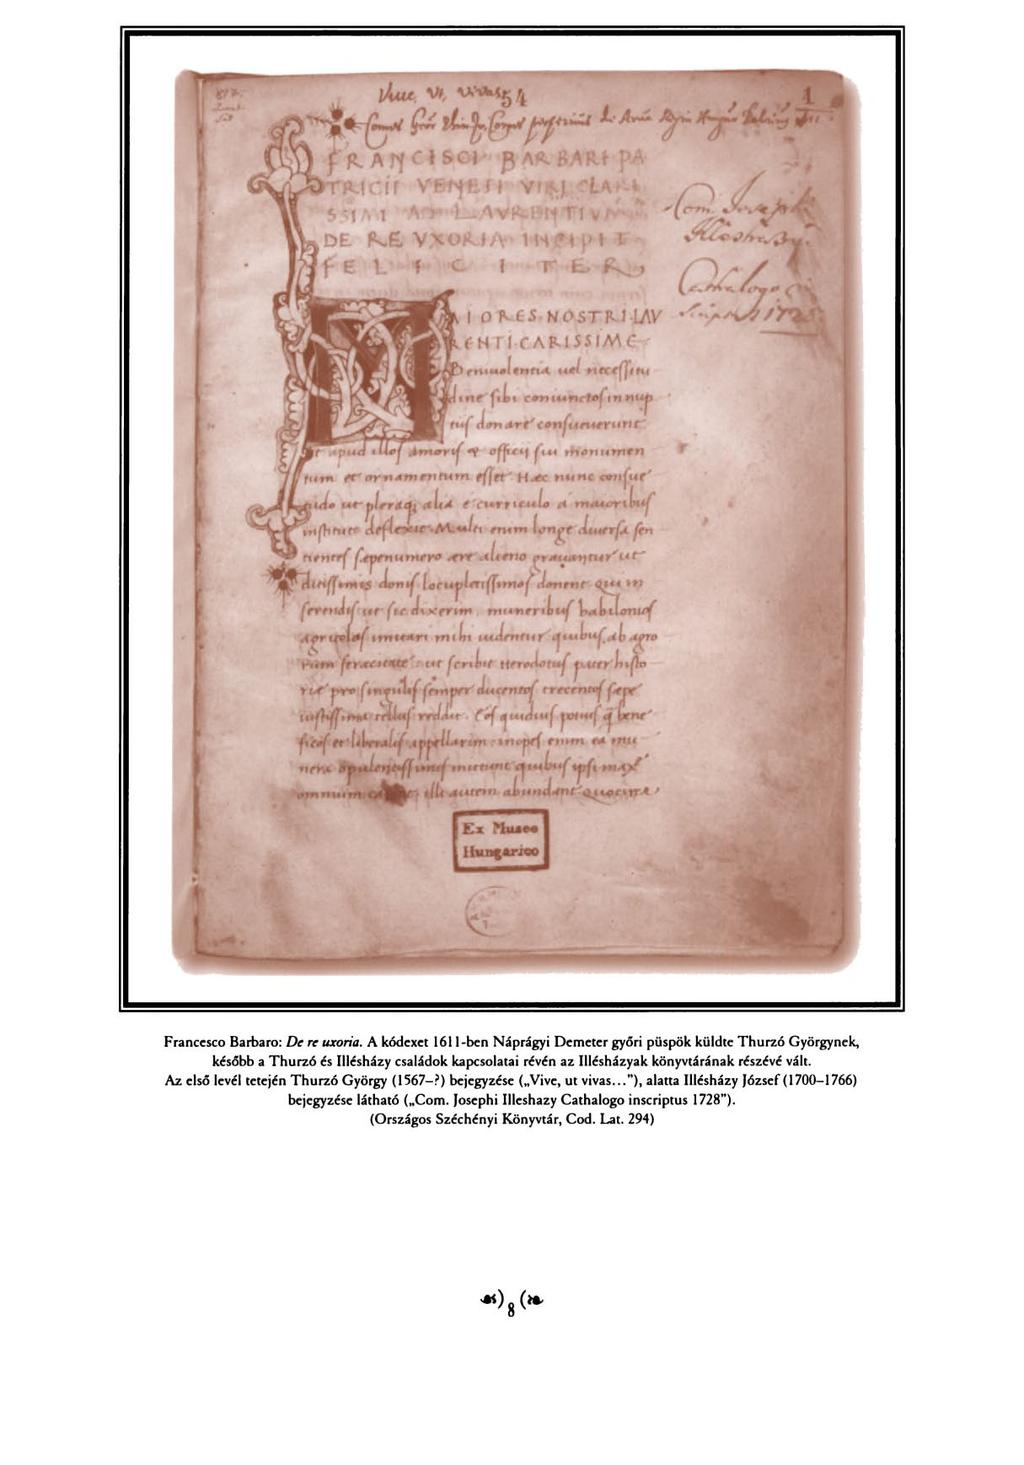 Viue, vt, viuas 54
1
FRANCISCI BARBARI PA
TRICII VENETI VIRI CLARI
SSIMI AD LAVRENTIVM
DE RE VXORIA INCIPIT
FELICITER
Com. Josephi
Illeshazy
Cathalogo
MAIORES NOSTRI LAV
RENTI CARISSIME
Beniuolentia uel necessitu
dine sibi coniunctos in nup
tiis donare consueuerunt
ut apud illos amoris & officii sui monumen
tum et ornamentum esset Hæc nunc consue
tudo ut pleraq; alia e curriculo a maioribus
instituto deflexit Multi enim longe diuersa sen
tientes sæpenumero ære alieno grauantur ut
ditissimos donis locupletissimos donent Qui in
serendis ut sic dixerim muneribus babilonios
agricolas imitari mihi uidentur quibus ab agro
rum feracitate ut scribit Herodotus pater histo
riæ pro singulis semper ducentos trecentos sæpe
iustissima tellus reddit. Eos quidius potius q bene
ficos et liberalis appellarim inopes enim ea mu
nera opulentissimis mittunt quibus ipsi maxe
omnium illi autem abundant Quocirca
Ex Museo
Hungarico
Francesco Barbaro: De re uxoria. A kódexet 1611-ben Náprágyi Demeter győri püspök küldte Thurzó Györgynek,
később a Thurzó és Illésházy családok kapcsolatai révén az Illésházyak könyvtárának részévé vált.
Az első levél tetején Thurzó György (1567–?) bejegyzése („Vive, ut vivas...”), alatta Illésházy József (1700–1766)
bejegyzése látható („Com. Josephi Illeshazy Cathalogo inscriptus 1728”).
(Országos Széchényi Könyvtár, Cod. Lat. 294)
8